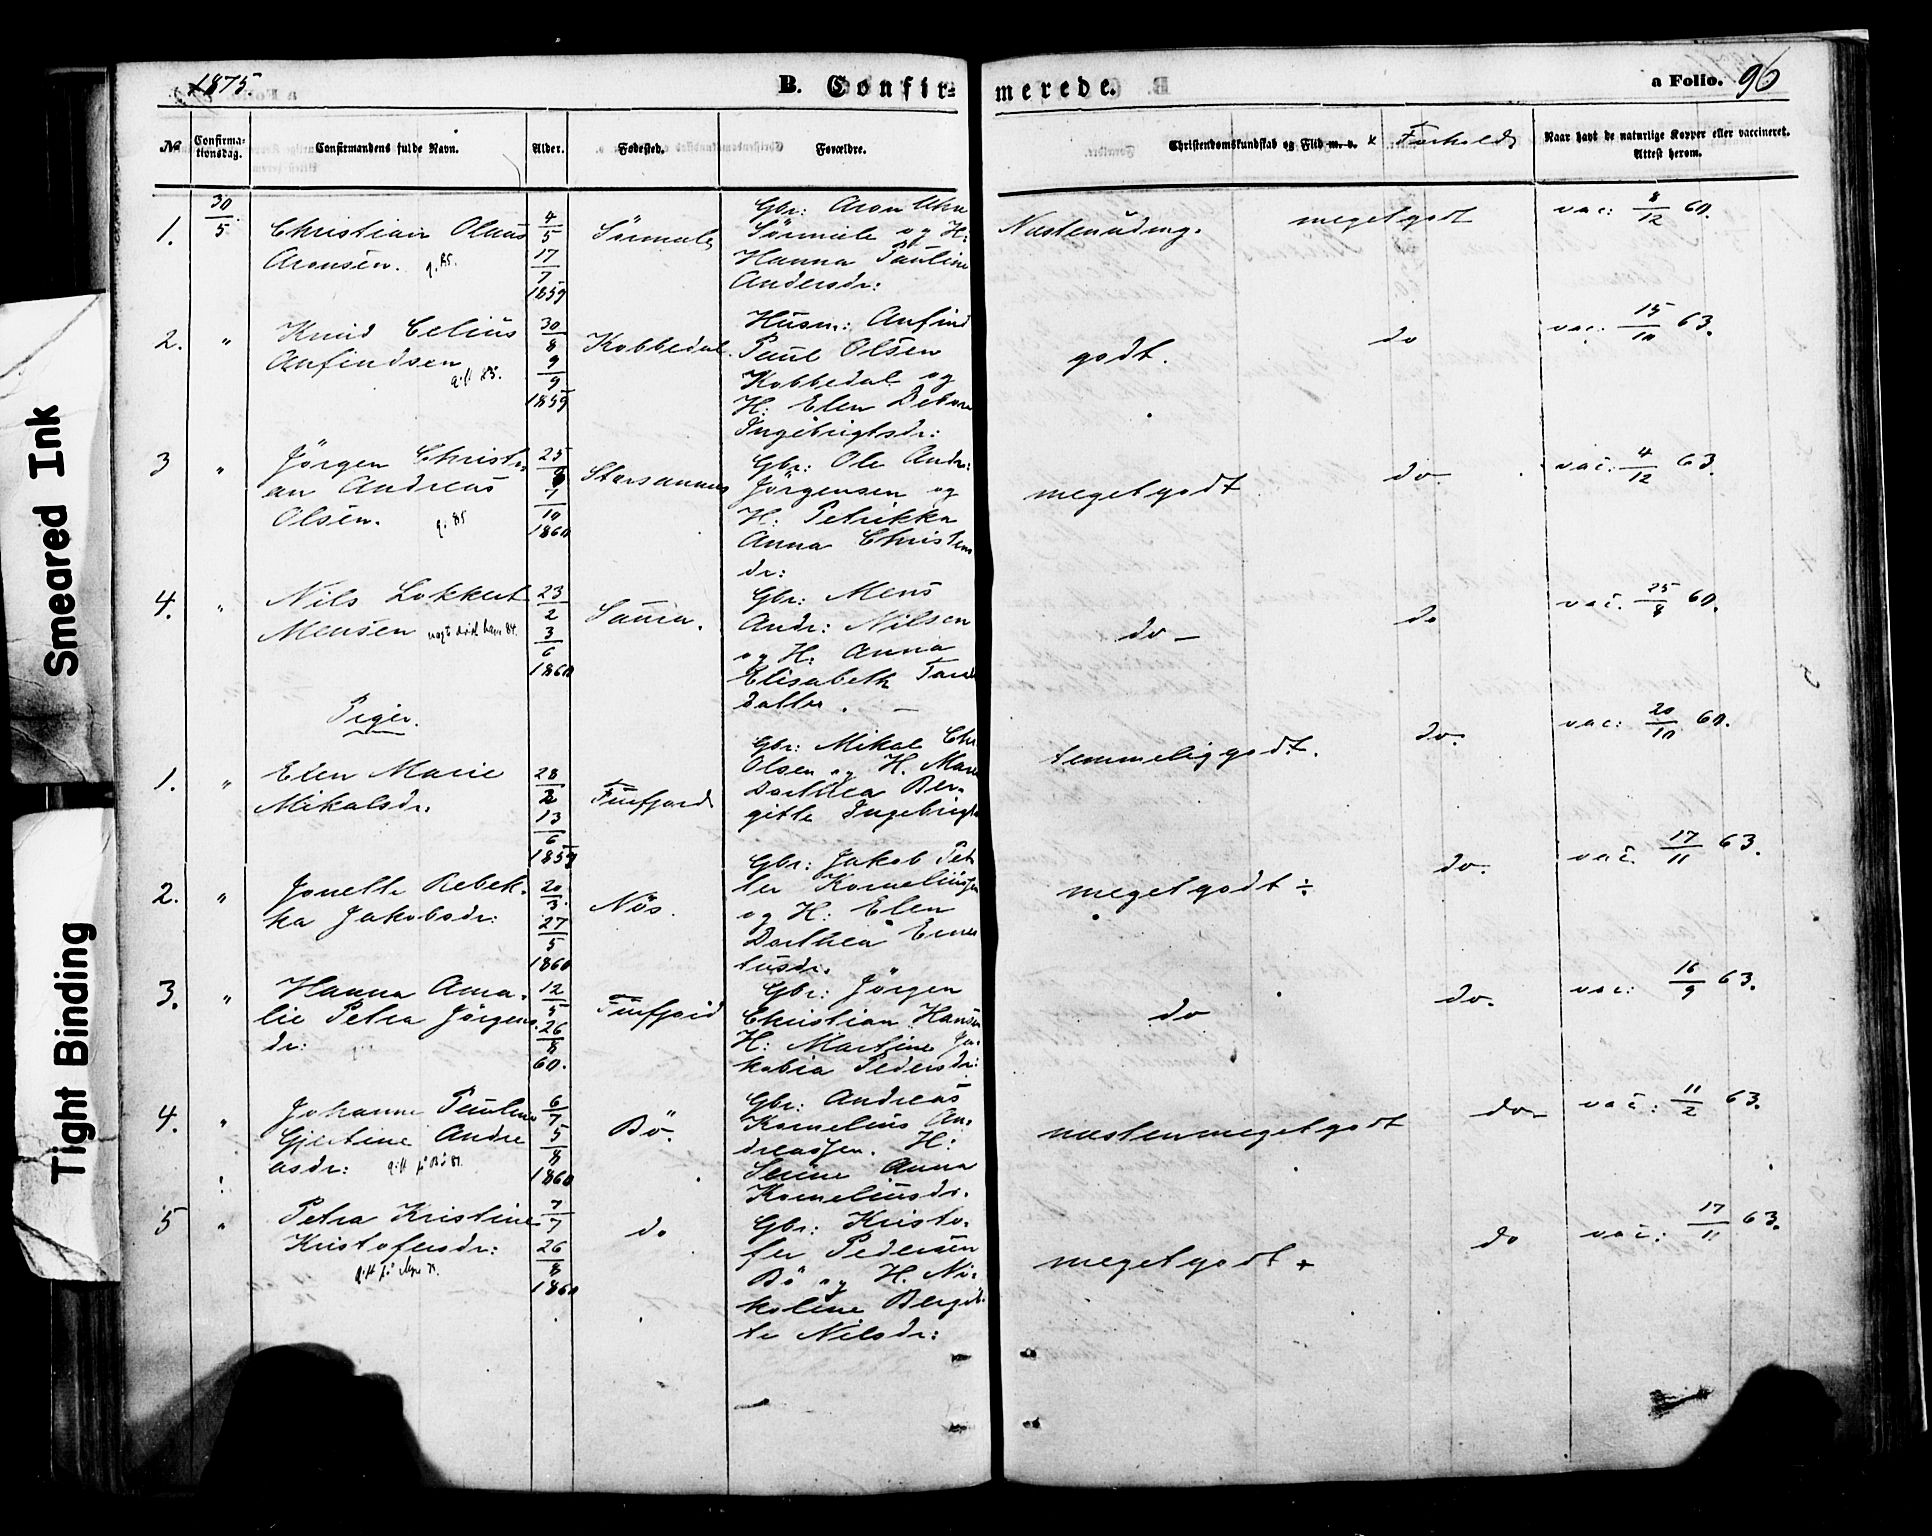 Smeared Ink
Tight Binding
1875.
B. Confir-
merede.
a Folio. 96
No
Confirma-
tionsdag.
Confirmandens fulde Navn.
Alder.
Fødested.
Forældre.
Christendomskundskab og Flid m. v. x Forhold
Naar havt de naturlige Kopper eller vaccineret.
Attest herom.
1.
30/5
Christian Olaus
Aronsen.
4/5
17/7
1859
Gbr: Aron
og H:
Hanna Pauline
Andersdr:
meget godt
vac: 8/12 60.
2.
"
Knud Celius
Anfindsen
gift 85.
30/8
9/9
1859
Kobbedal.
Husm: Anfind
Paul Olsen
Kobbedal og
H: Elen
Ingebrigtsdr:
godt.
do
vac: 15/10 63.
3
"
Jörgen Christi-
an Andreas
Olsen.
g. 85
25/
7/10
1860
Gbr: Ole Andr:
Jörgensen og
H: Petrikka
Anna Christens
dr:
meget godt
do
vac: 4/12 63.
4.
"
Nils Lokkert
Mensen
23/2
3/6
1860
Gbr: Mens
Andr: Nilsen
og H: Anna
Elisabeth
datter.
do -
do
vac. 25/8 60.
Piger.
1.
"
Elen Marie
Mikalsdr.
28/2
13/6
1859
Finfjord
Gbr: Mikal Chr
Olsen og H. Mar
Dorthea Ber-
gitte Ingebrigts
temmelig godt.
do.
vac: 20/10 60.
2.
"
Jonette Rebek-
ka Jakobsdr:
20/3
27/5
1860
Nös.
Gbr: Jakob Pet
ter Korneliusen
og H: Elen
Dorthea
tusdr.
meget godt ÷
do.
vac. 17/11 63.
3.
"
Hanna Ama-
lie Petra Jörgens
dr:
12/5
26/8
60.
Finfjord
Gbr: Jörgen
Christian Hansen
H: Martine Ja-
kobia Pedersdr:
do
do.
vac: 16/9 63.
4.
"
Johanne Pauline
Gjertine Andre
asdr:
6/7
5/8
1860
Bö.
Gbr: Andreas
Kornelius An-
dreassen. H:
Anna
Korneliusdr.
næsten meget godt
do
vac: 11/2 63.
5
"
Petra Kristine
Kristofersdr:
7/7
26/8
1860
do
Gbr: Kristo-
fer Pedersen
Bö og H. Ni-
koline Bergit-
te Nilsdr:
meget godt +
do
vac: 17/11 63.